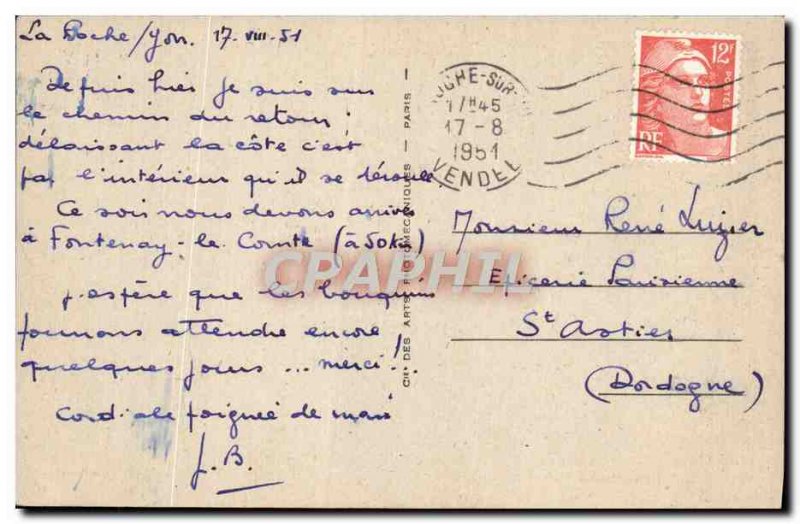 La Roche/Yon. 17-VIII-51
Depuis hier je suis sur
le chemin du retour ;
délaissant la côte c'est
par l'intérieur qu'il se déroule.
Ce soir nous devons arriver
à Fontenay-le-Comte (à 50km)
J'espère que les bouquins
pourront attendre encore
quelques jours ... merci !
Cordiale poignée de main
J.B.
CIE DES ARTS PHOTOMECANIQUES — PARIS —
ROCHE-SUR-YON
17H45
17-8
1951
VENDEE
12F
POSTES
RF
Monsieur René
Epicerie Parisienne
St Astier
(Dordogne)
CPAPHIL